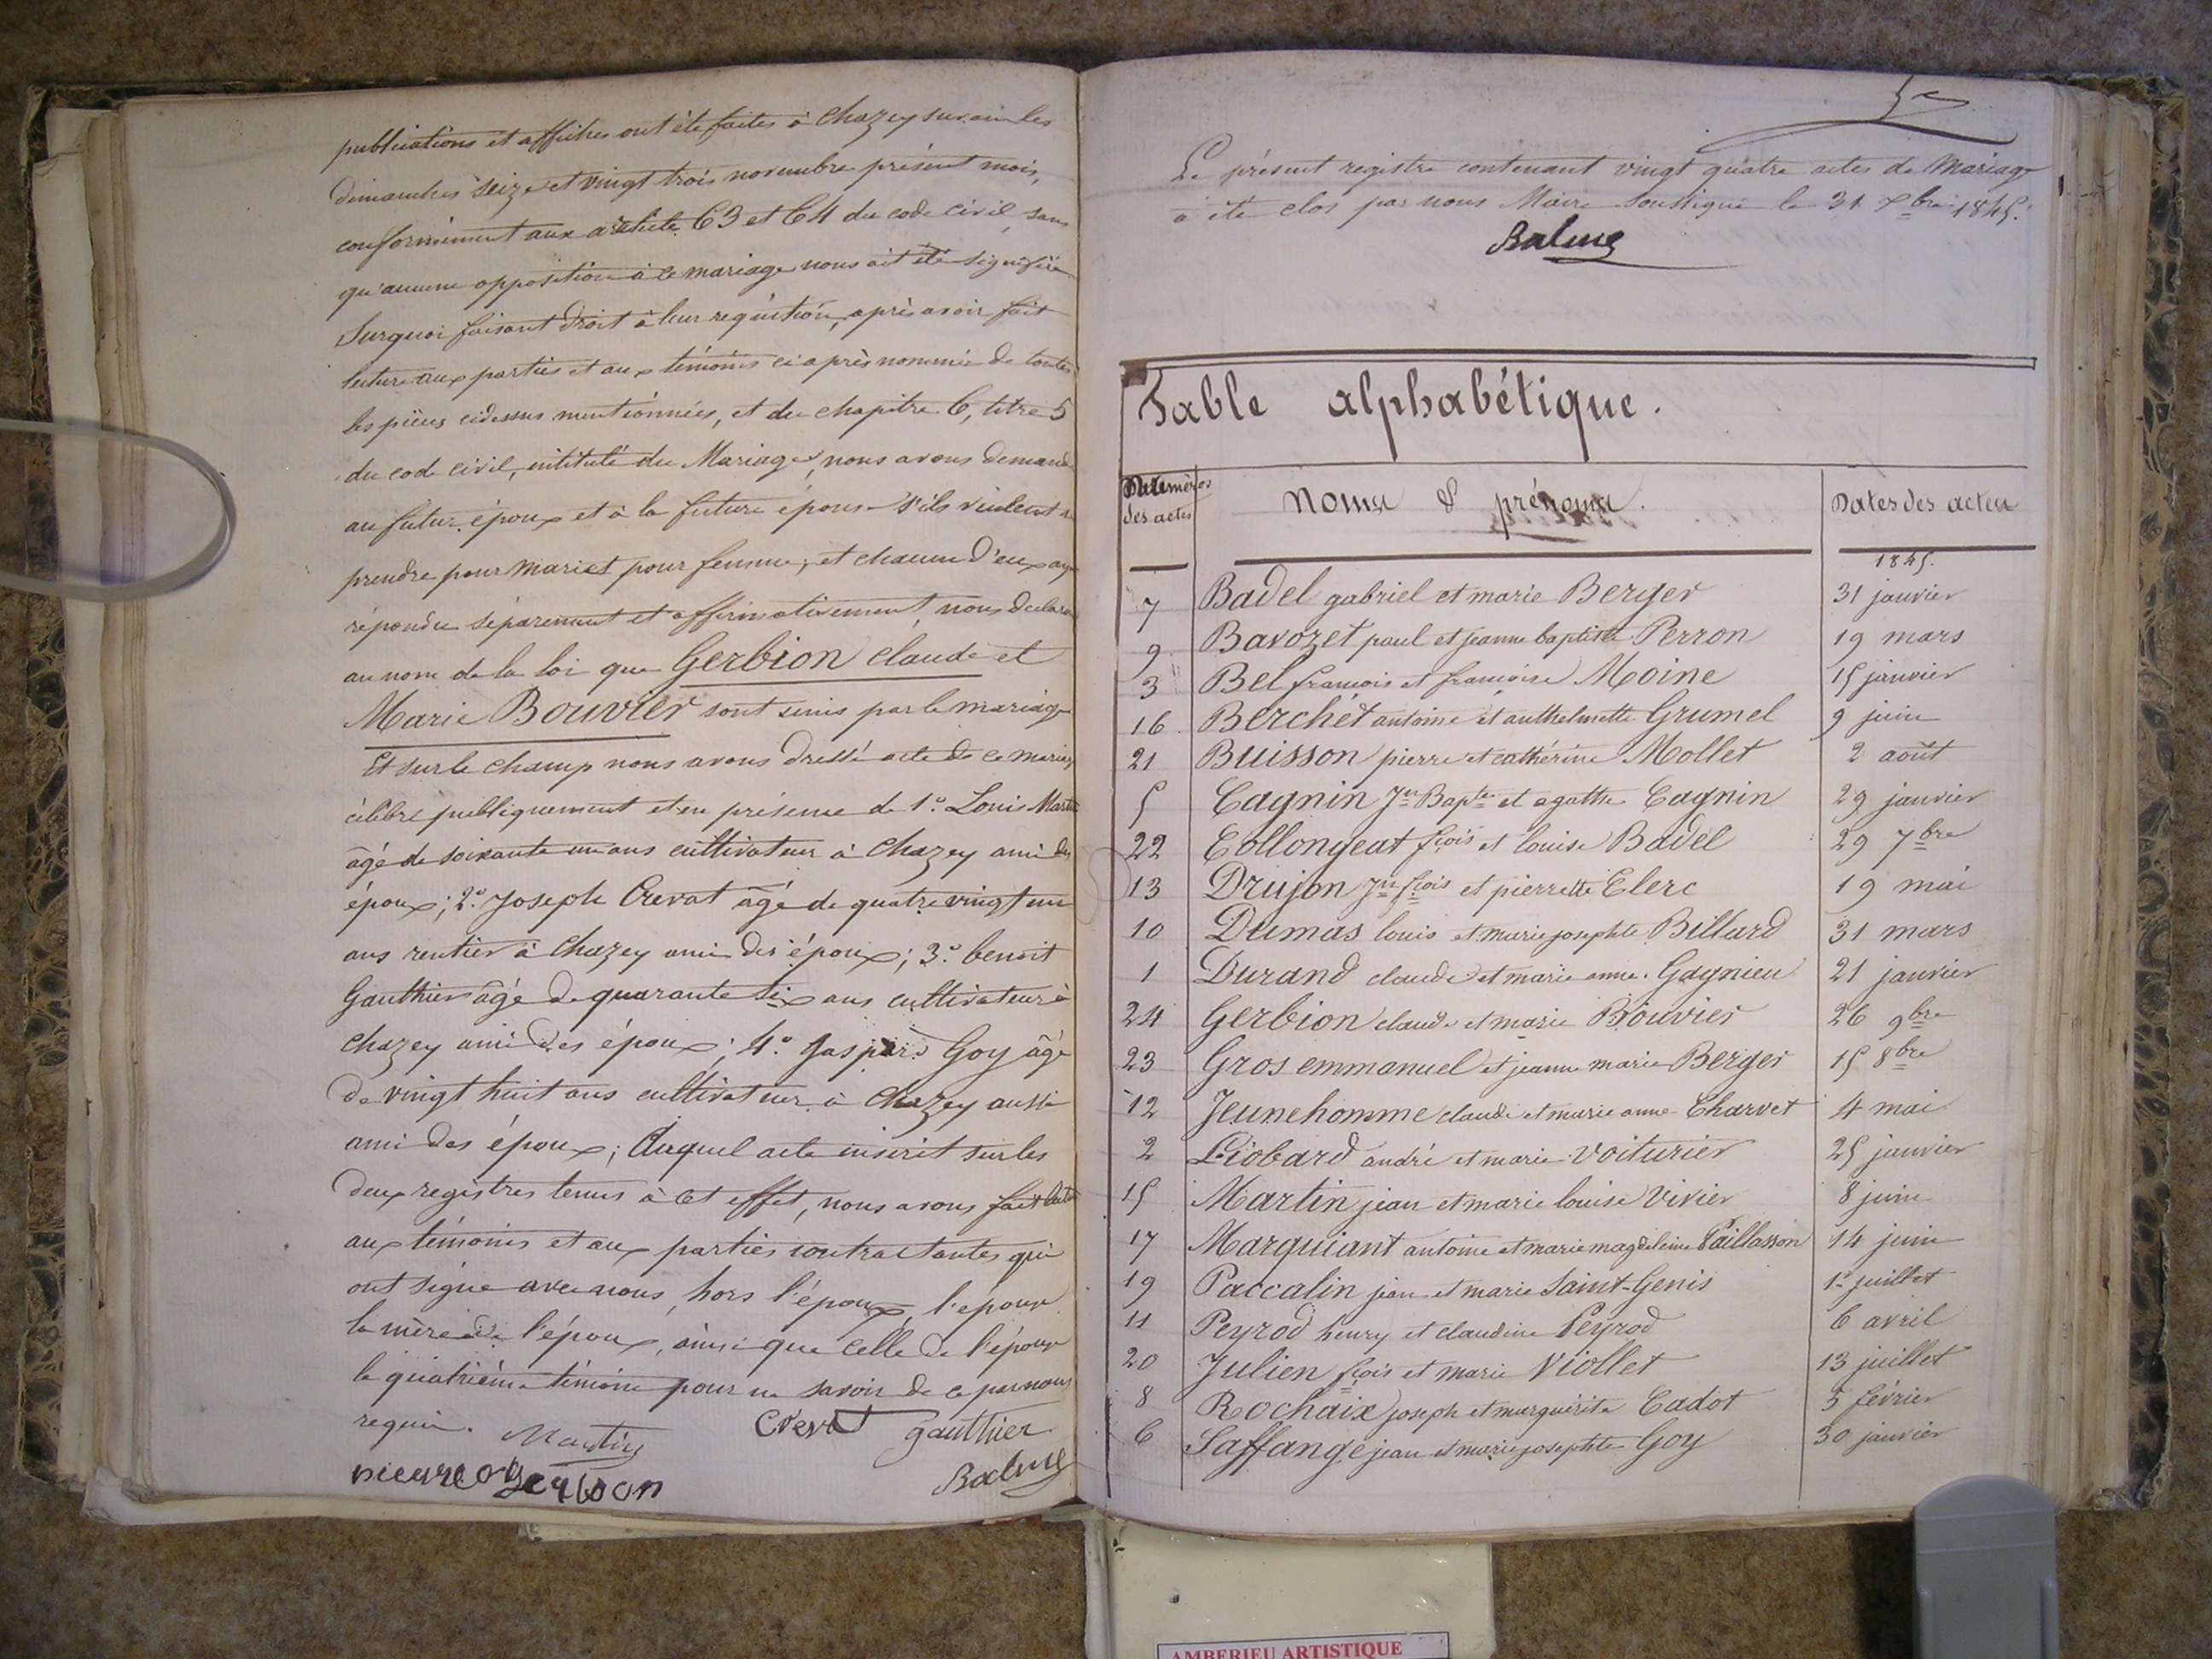 publications et affiches ont été faites à Chazey sur ain les
dimanches seize et vingt trois novembre présent mois,
conformément aux article 63 et 64 du code civil, sans
qu'aucune opposition à ce mariage nous ait été signifiée
Surquoi faisant droit à leur requisition, après avoir fait
lecture aux parties et aux témoins ci après nommés de toutes
les pièces cidessus mentionnées, et du chapitre 6, titre 5
du code civil, intitulé du Mariage, nous avons demandé
au futur époux et à la future épouse s'ils veulent se
prendre pour Mari et pour femme; et chacun d'eux ay
répondu séparement et affirmativement, nous declaro
au nom de la loi que Gerbion claude et
Marie Bouvier sont unis par le mariage
Et sur le champ nous avons dressé acte de ce mariag
célébré publiquement et en présence de 1.° Louis Martin
âgé de soixante un ans cultivateur à Chazey ami des
époux; 2.° Joseph Crevat âgé de quatre vingt un
ans rentier à Chazey ami des époux; 3.° benoit
Gauthier âgé de quarante six ans cultivateur à
Chazey ami des époux; 4.° Gaspard Goy âgé
de vingt huit ans cultivateur à Chazey aussi
ami des époux; Duquel acte inscrit sur les
deux registres tenus à cet effet, nous avons fait lect
aux témoins et aux parties contractantes qui
ont signé avec nous, hors l'époux, l'épouse
la mère de l'époux, ainsi que celle de l'épouse
le quatrième témoin pour ne savoir de ce par nous
requis. Martin Crevat gauthier
pierre gerbion Balme
Le présent registre contenant vingt quatre actes de Mariage
a été clos par nous Maire soussigné le 31 Xbre 1845.
Balme
Table alphabétique.
Numéros des actes Noms & prénoms. Dates des actes
1845.
7 Badel gabriel et marie Berger 31 janvier
9 Bavozet paul et jeanne baptiste Perron 19 mars
3 Bel françois et françoise Moine 15 janvier
16 Berchet antoine et anthelmette Grumel 9 juin
21 Buisson pierre et cathérine Mollet 2 août
5 Cagnin Jn Bapte et agathe Cagnin 29 janvier
22 Collongeat fçois et louise Badel 29 7bre
13 Drujon Jn fçois et pierrette Clerc 19 mai
10 Dumas louis et marie josephte Billard 31 mars
1 Durand claude et marie anne Gagnieu 21 janvier
24 Gerbion claude et marie Bouvier 26 9bre
23 Gros emmanuel et jeanne marie Berger 15 8bre
12 Jeunehomme claude et marie anne Charvet 4 mai
2 Liobard andré et marie Voiturier 25 janvier
15 Martin jean et marie louise Vivier 8 juin
17 Marquiant antoine et marie magdeleine Paillasson 14 juin
19 Paccalin jean et marie Saint-Genis 1er juillet
11 Peyrod henry et claudine Peyrod 6 avril
20 Julien fçois et marie Viollet 13 juillet
8 Rochaix joseph et marguérite Cadot 5 février
6 Saffange jean et marie josephte Goy 30 janvier
AMBERIEU ARTISTIQUE